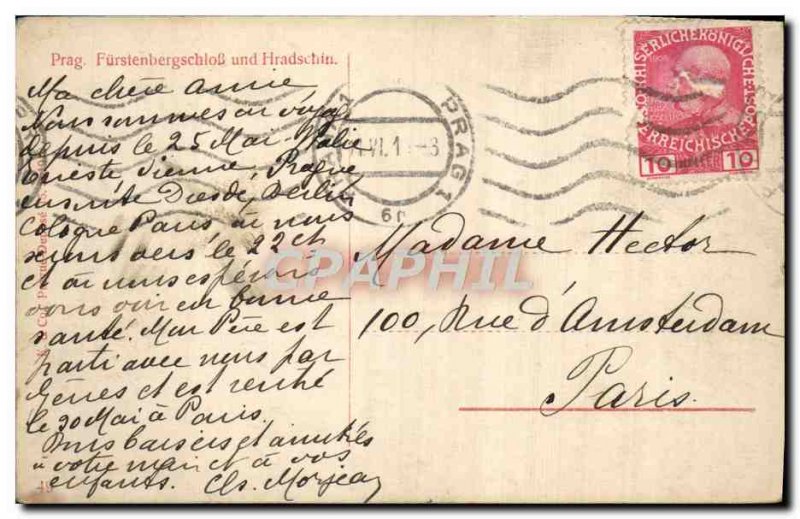 Prag. Fürstenbergschloß und Hradschin.
Ma chère amie
Nous sommes en voyage
depuis le 25 Mai. Italie
Trieste Vienne, Prague
ensuite Dresde, Berlin
Cologne Paris où nous
serons vers le 22 ct
et où nous espérons
vous voir en bonne
santé. Mon Père est
parti avec nous par
Gênes et est rentré
le 30 Mai à Paris.
Bons baisers et amitiés
à votre mari et à vos
enfants. Ch.
PRAG 1
VI.1
6r
KAISERLICHE KÖNIGLICHE
ÖSTERREICHISCHE
10 HELLER 10
CPAPHIL
Madame Hector
100, Rue d'Amsterdam
Paris.